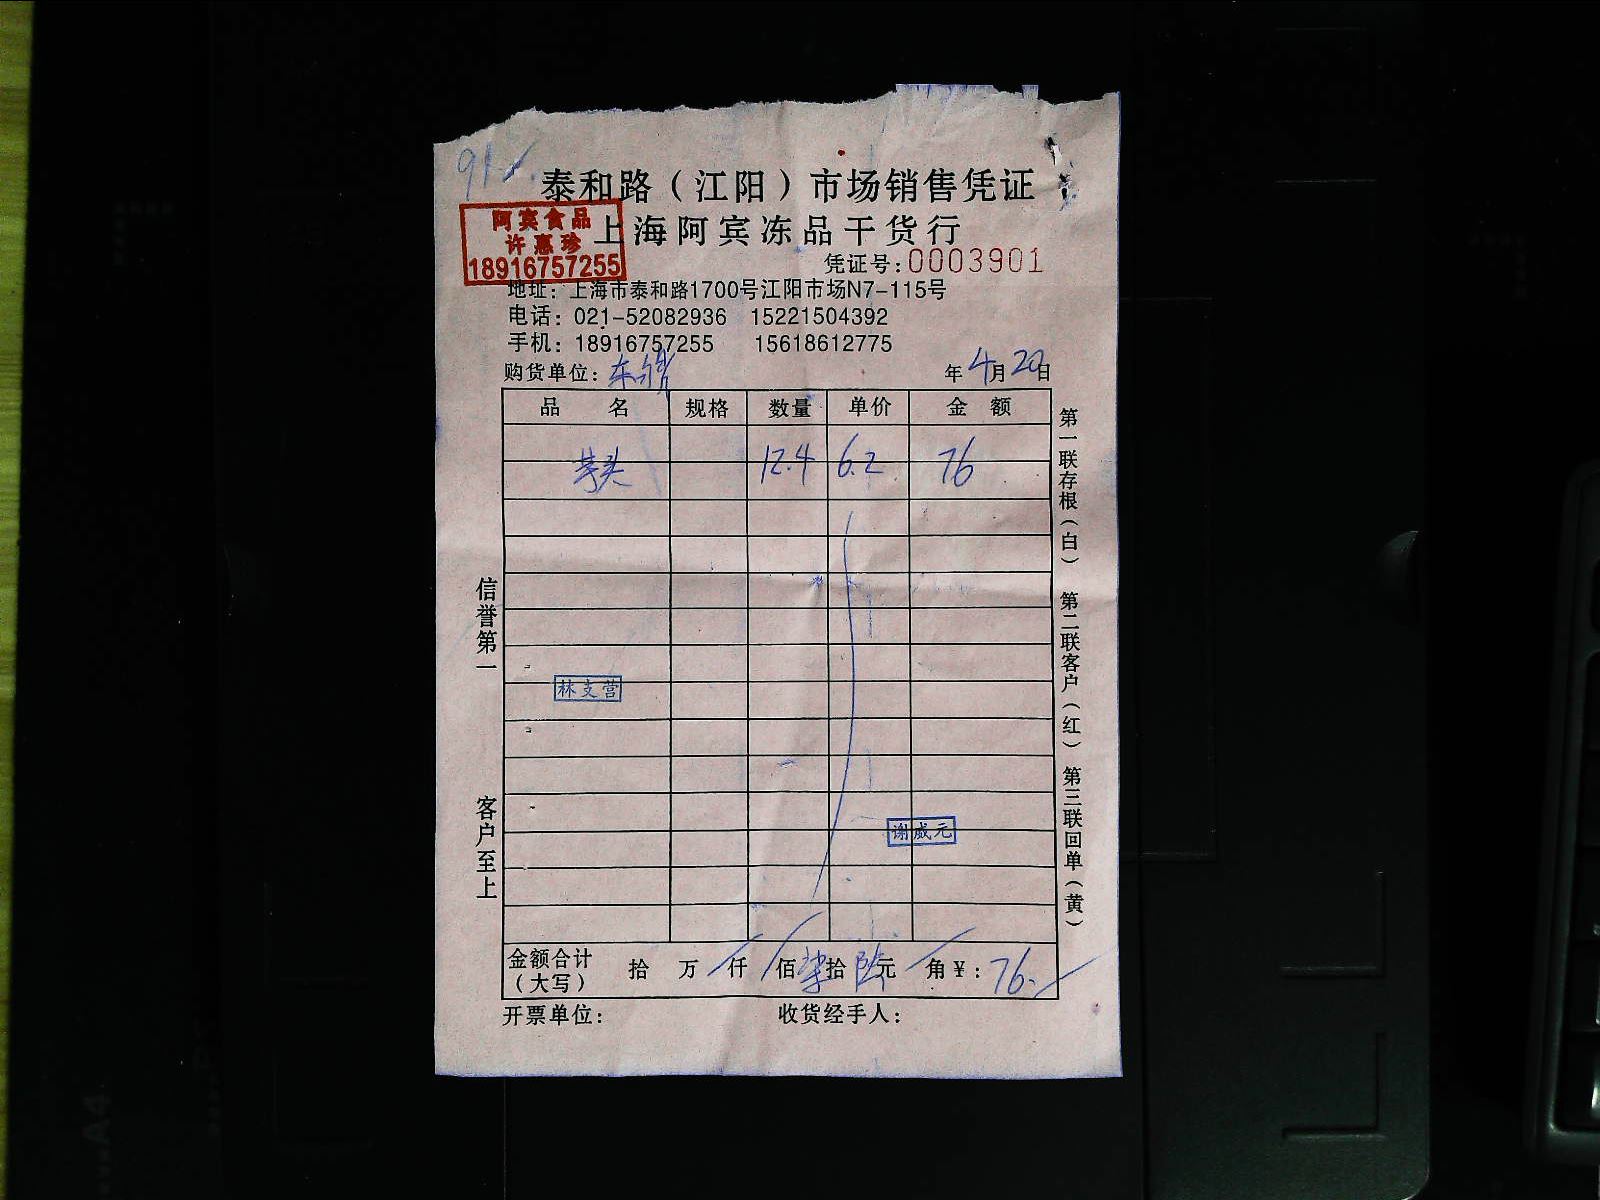 91
泰和路（江阳）市场销售凭证
阿宾食品
许惠珍
18916757255
上海阿宾冻品干货行
凭证号:0003901
地址：上海市泰和路1700号江阳市场N7-115号
电话：021-52082936 15221504392
手机：18916757255 15618612775
购货单位： 年4月20日
品名 规格 数量 单价 金额
芋头 12.4 6.2 76
信誉第一 客户至上
第一联存根（白） 第二联客户（红） 第三联回单（黄）
林支营
谢威元
金额合计（大写） 拾 万 仟 佰 柒拾 陆元 角 ¥：76.
开票单位： 收货经手人：